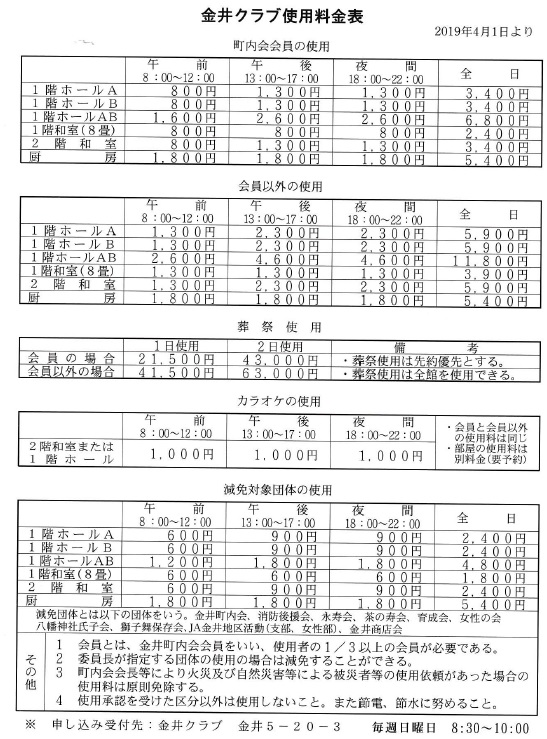 金井クラブ使用料金表
2019年4月1日より
町内会会員の使用
午前 8:00~12:00 午後 13:00~17:00 夜間 18:00~22:00 全日
1階ホールA 800円 1,300円 1,300円 3,400円
1階ホールB 800円 1,300円 1,300円 3,400円
1階ホールAB 1,600円 2,600円 2,600円 6,800円
1階和室(8畳) 800円 800円 800円 2,400円
2階和室 800円 1,300円 1,300円 3,400円
厨房 1,800円 1,800円 1,800円 5,400円
会員以外の使用
午前 8:00~12:00 午後 13:00~17:00 夜間 18:00~22:00 全日
1階ホールA 1,300円 2,300円 2,300円 5,900円
1階ホールB 1,300円 2,300円 2,300円 5,900円
1階ホールAB 2,600円 4,600円 4,600円 11,800円
1階和室(8畳) 1,300円 1,300円 1,300円 3,900円
2階和室 1,300円 2,300円 2,300円 5,900円
厨房 1,800円 1,800円 1,800円 5,400円
葬祭使用
1日使用 2日使用 備考
会員の場合 21,500円 43,000円 ・葬祭使用は先約優先とする。
会員以外の場合 41,500円 63,000円 ・葬祭使用は全館を使用できる。
カラオケの使用
午前 8:00~12:00 午後 13:00~17:00 夜間 18:00~22:00
2階和室または
1階ホール 1,000円 1,000円 1,000円
・会員と会員以外
の使用料は同じ
・部屋の使用料は
別料金(要予約)
減免対象団体の使用
午前 8:00~12:00 午後 13:00~17:00 夜間 18:00~22:00 全日
1階ホールA 600円 900円 900円 2,400円
1階ホールB 600円 900円 900円 2,400円
1階ホールAB 1,200円 1,800円 1,800円 4,800円
1階和室(8畳) 600円 600円 600円 1,800円
2階和室 600円 900円 900円 2,400円
厨房 1,800円 1,800円 1,800円 5,400円
減免団体とは以下の団体をいう。金井町内会、消防後援会、永寿会、茶の寿会、育成会、女性の会
八幡神社氏子会、獅子舞保存会、JA金井地区活動(支部、女性部)、金井商店会
その他
1 会員とは、金井町内会会員をいい、使用者の1/3以上の会員が必要である。
2 委員長が指定する団体の使用の場合は減免することができる。
3 町内会会長等により火災及び自然災害等による被災者等の使用依頼があった場合の
使用料は原則免除する。
4 使用承認を受けた区分以外は使用しないこと。また節電、節水に努めること。
※ 申し込み受付先:金井クラブ 金井5-20-3 毎週日曜日 8:30~10:00